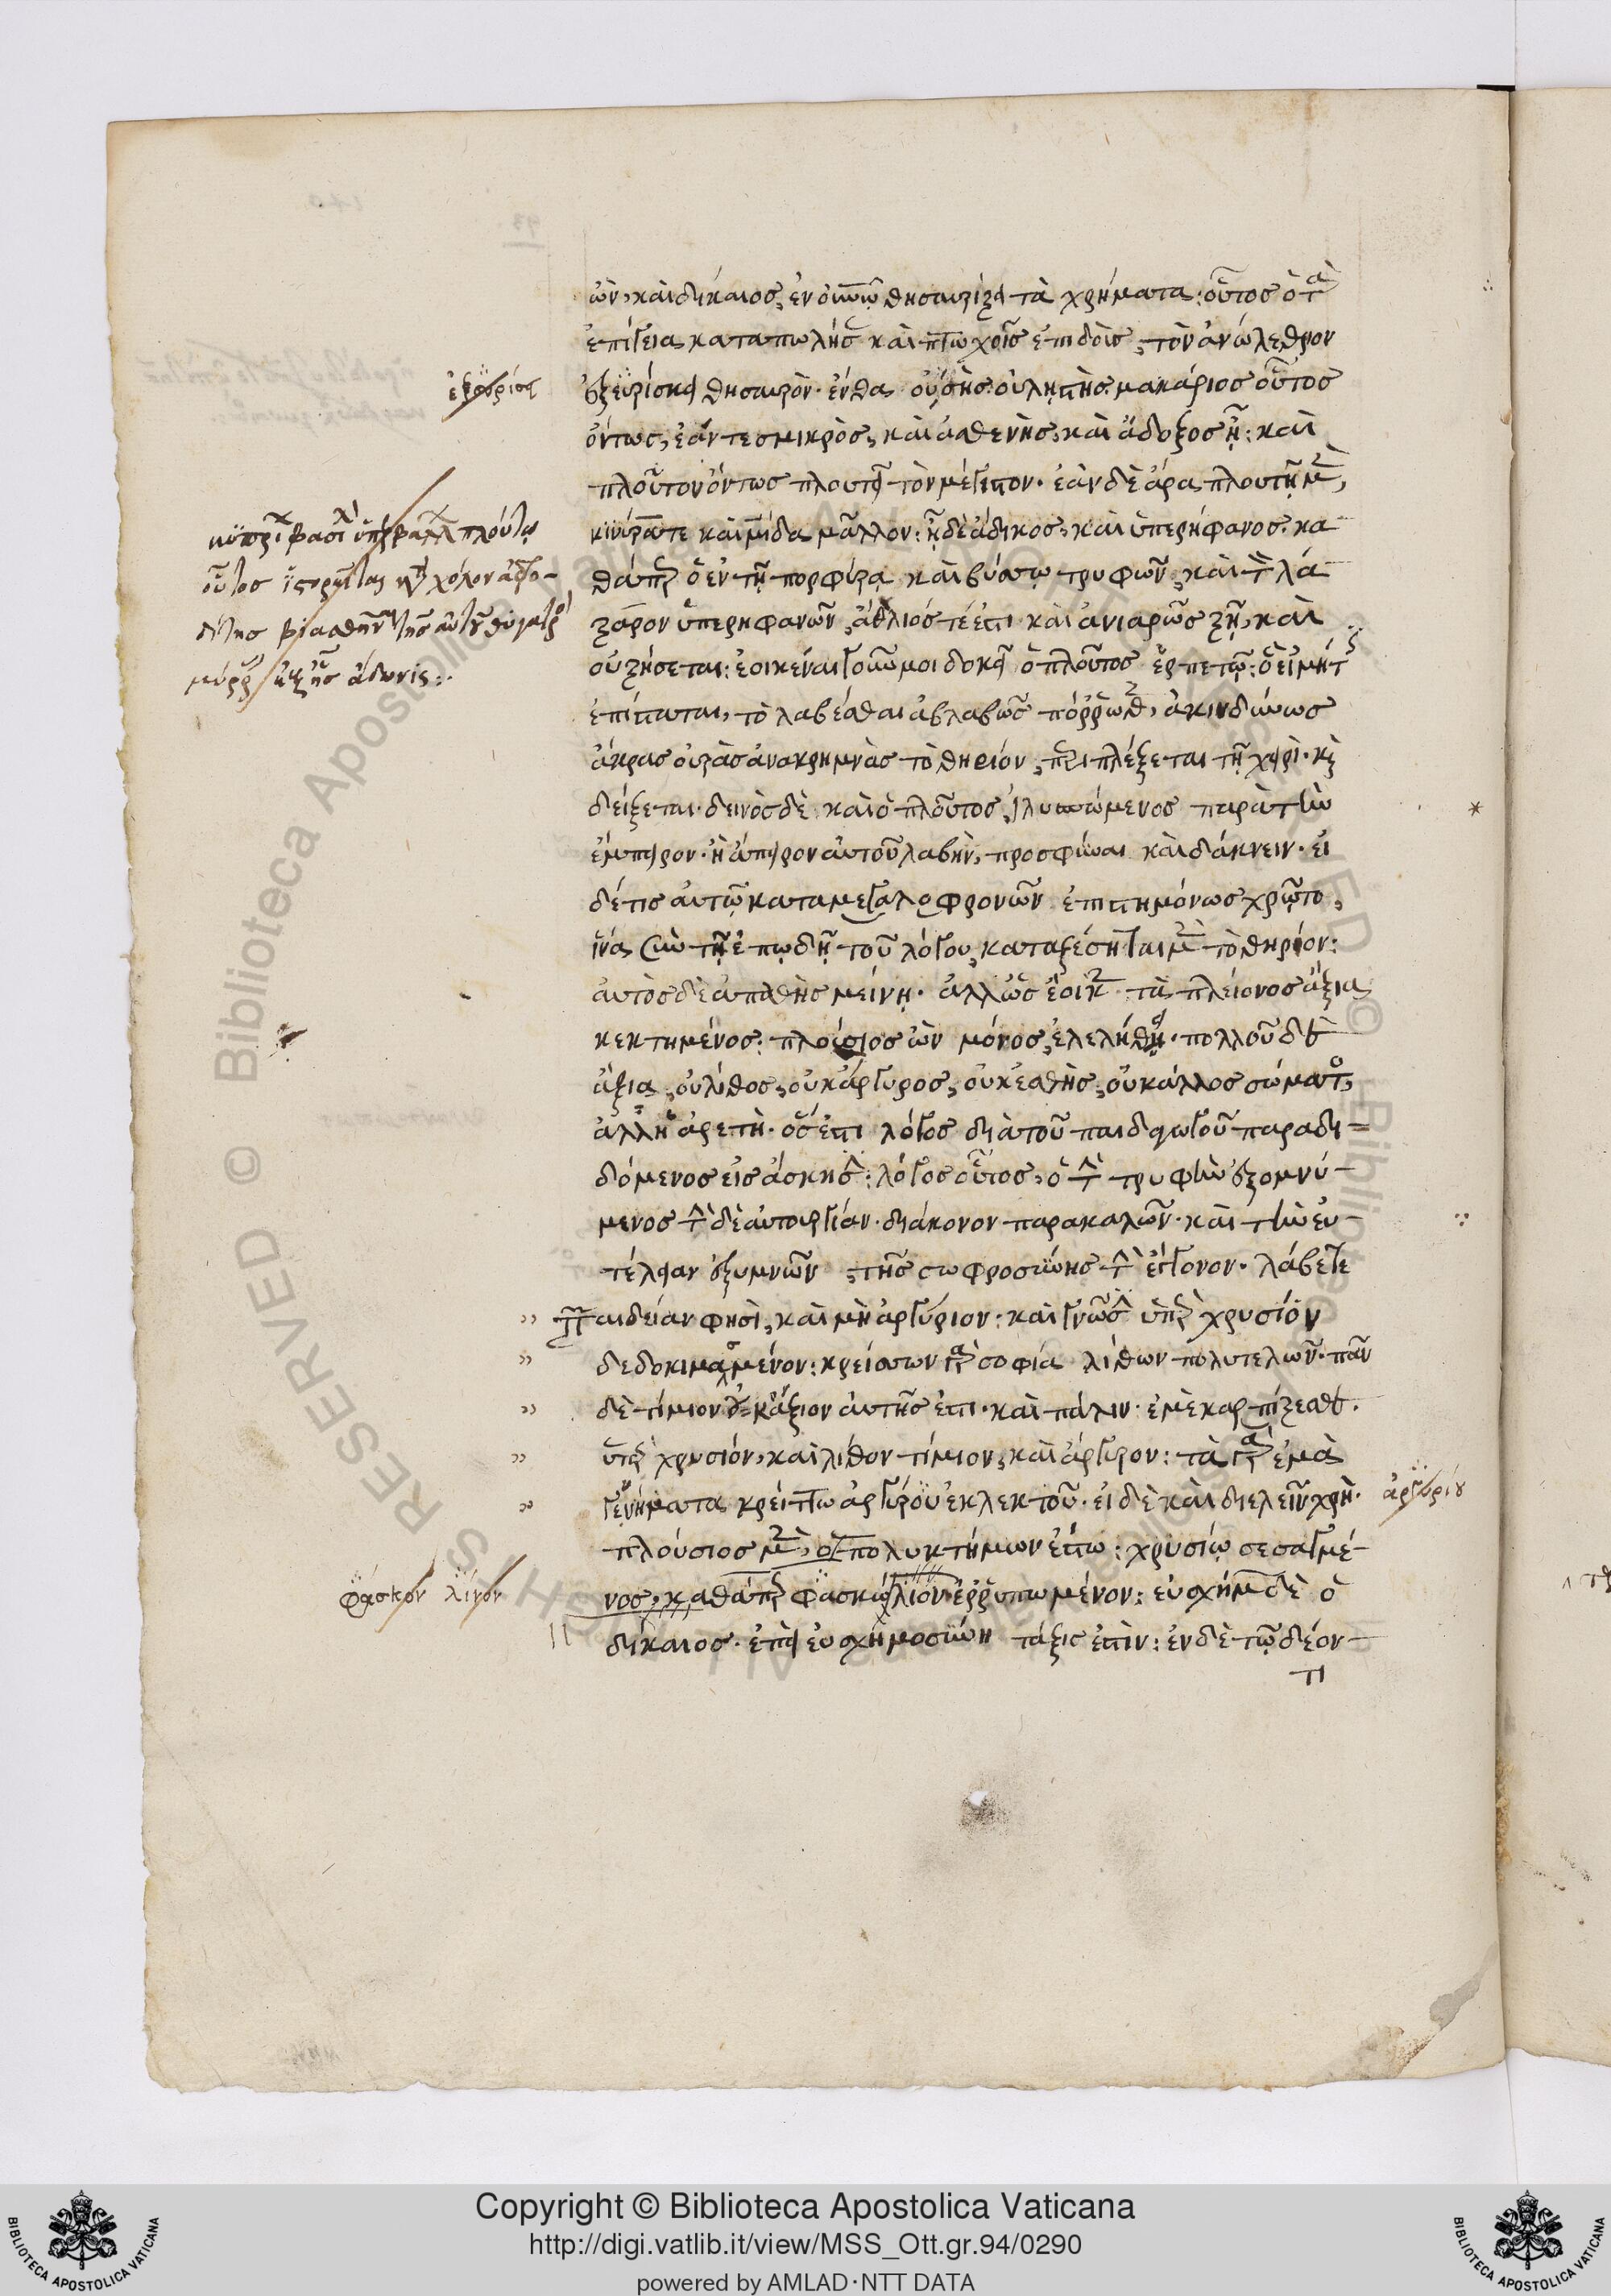 ὢν, καὶ δίκαιος, ἐν οὐνῷ θησαυρίζει τὰ χρήματα: οὗτος ὁ τὰ
ἐπίγεια καταπωλήσ καὶ πτωχοῖς ἐπιδοὺς, τὸν ἀνώλεθρον
ἐξευρίσκει θησαυρόν· ἔνθα οὐ σὴς. οὐ λῃστής. μακάριος οὗτος
ὄντως, ἐάν τε σμικρὸς, καὶ ἀσθενὴς, καὶ ἄδοξος ᾖ: καὶ
πλοῦτον ὄντως πλουτεῖ τὸν μέγιστον. ἐὰν δὲ ἄρα πλουτῇ μ,
κινύρα τε καὶ μίδα μᾶλλον: ᾖ δὲ ἄδικος, καὶ ὑπερήφανος. κα
θάπερ ὁ ἐν τῇ πορφύρᾳ καὶ βύσσῳ τρυφῶν, καὶ τ λά
ζαρον ὑπερηφανῶν, ἄθλιός τέ ἐστι καὶ ἀνιαρῶς ζῇ, καὶ
οὐ ζήσεται: ἐοικέναι γοῦν μοι δοκεῖ ὁ πλοῦτος ἑρπετῷ: ὃ εἰ μή τις
ἐπίσταται, τὸ λαβέσθαι ἀβλαβῶς πόρρωθ, ἀκινδύνως
ἄκρας οὐρᾶς ἀνακρημνὰς τὸ θηρίον, περιπλέξεται τῇ χειρὶ. κ
δείξεται. δεινὸς δὲ καὶ ὁ πλοῦτος, ἰλυσπώμενος παρὰ τὴν
ἔμπειρον. ἢ ἄπειρον αὐτοῦ λαβὴν, προσφῦναι καὶ δάκνειν. εἰ
δέ τις αὐτῷ καταμεγαλοφρονῶν ἐπιστημόνως χρῷτο,
ἵνα σὺν τῇ ἐπῳδῇ τοῦ λόγου, καταξέσηται μ τὸ θηρίον:
αὐτὸς δὲ ἀπαθὴς μείνῃ. ἀλλ ὡς ἔοικ τὰ πλείονος ἄξια
κεκτημένος: πλούσιος ὢν μόνος, ἐλελήθει. πολλοῦ δὲ
ἄξια, οὐ λίθος, οὐκ ἄργυρος, οὐκ ἐσθὴς, οὐ κάλλος σώματος,
ἀλλ ἡ ἀρετὴ. ὅς ἐστι λόγος διὰ τοῦ παιδαγωγοῦ παραδι-
δόμενος εἰς ἄσκησ: λόγος οὗτος, ὁ τὴν τρυφὴν ἐξομνύ-
μενος τὴν δὲ αὐτουργίαν. διάκονον παρακαλῶν. καὶ τὴν εὐ-
τέλειαν ἐξυμνῶν, τῆς σωφροσύνης τὴν ἔγγονον. λάβετε
παιδείαν φησὶ, καὶ μὴ ἀργύριον: καὶ γνῶσ ὑπὲρ χρυσίον
δεδοκιμασμένον: κρείσσων γὰρ σοφία λίθων πολυτελῶν. πᾶν
δὲ τίμιον οὐκ ἄξιον αὐτῆς ἐστι. καὶ πάλιν. ἐμὲ καρπίζεσθε.
ὑπὲρ χρυσίον, καὶ λίθον τίμιον, καὶ ἄργυρον: τὰ γὰρ ἐμὰ
γεννήματα κρείττω ἀργύρου ἐκλεκτοῦ. εἰ δὲ καὶ διελεῖν χρή.
πλούσιος μ, ὁ πολυκτήμων ἔστω: χρυσίῳ σεσαγμέ-
νος, καθάπερ φασκώλιον ἐρρυπωμένον: εὐσχήμ δὲ ὁ
δίκαιος. ἐπεὶ εὐσχημοσύνη τάξις ἐστὶν: ἐν δὲ τῷ δέον-
τι
ἐξορίσ
κύπρ βασι ὑπερβαλλ πλούτῳ
οὗτος
βιασθην τῆς αὐτοῦ θυγατρ
μύρρ ἐξ ἧς ἄδωνις:.
ἀργυρίου
φάσκον λίνον
Copyright © Biblioteca Apostolica Vaticana
http://digi.vatlib.it/view/MSS_Ott.gr.94/0290
powered by AMLAD·NTT DATA
BIBLIOTECA APOSTOLICA VATICANA
BIBLIOTECA APOSTOLICA VATICANA